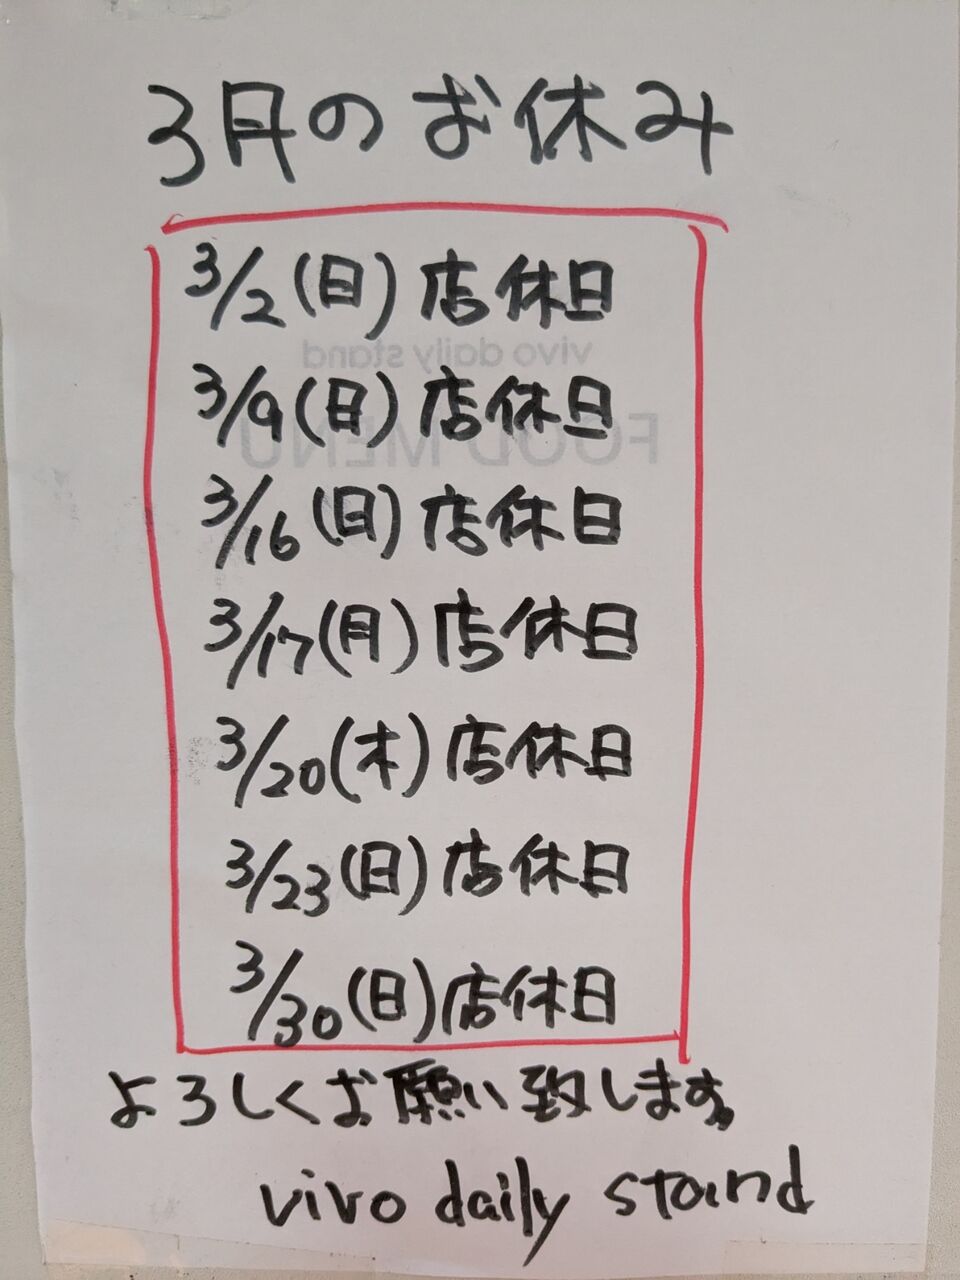 3月のお休み
3/2(日)店休日
3/9(日)店休日
3/16(日)店休日
3/17(月)店休日
3/20(木)店休日
3/23(日)店休日
3/30(日)店休日
よろしくお願い致します。
vivo daily stand
vivo daily stand
FOOD MENU